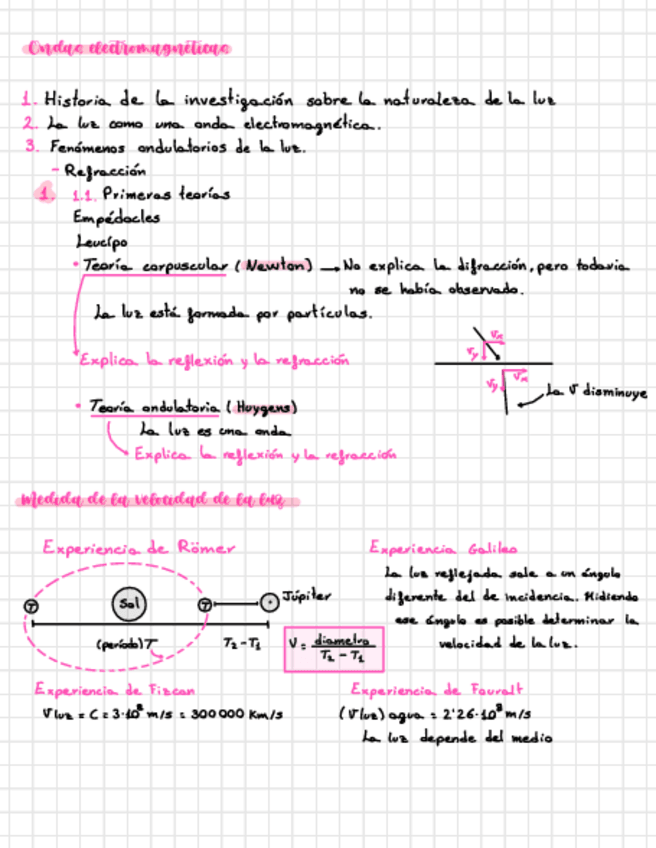 Ondas electromagnéticas
1. Historia de la investigación sobre la naturaleza de la luz
2. La luz como una onda electromagnética.
3. Fenómenos ondulatorios de la luz.
- Refracción
1. 1.1. Primeras teorías
Empédocles
Leucipo
• Teoría corpuscular (Newton) → No explica la difracción, pero todavía
no se había observado.
La luz está formada por partículas.
Explica la reflexión y la refracción
Vx
Vy
Vx
Vy
La V disminuye
• Teoría ondulatoria (Huygens)
La luz es una onda
Explica la reflexión y la refracción
Medida de la velocidad de la luz
Experiencia de Römer
Experiencia Galileo
La luz reflejada sale a un ángulo
diferente del de incidencia. Midiendo
ese ángulo es posible determinar la
velocidad de la luz.
T
Sol
T
Júpiter
(período) T
T2 - T1
V = diametro / T2 - T1
Experiencia de Fizcau
V luz = C = 3·10⁸ m/s = 300000 Km/s
Experiencia de Fouralt
(V luz) agua = 2'26·10⁸ m/s
La luz depende del medio